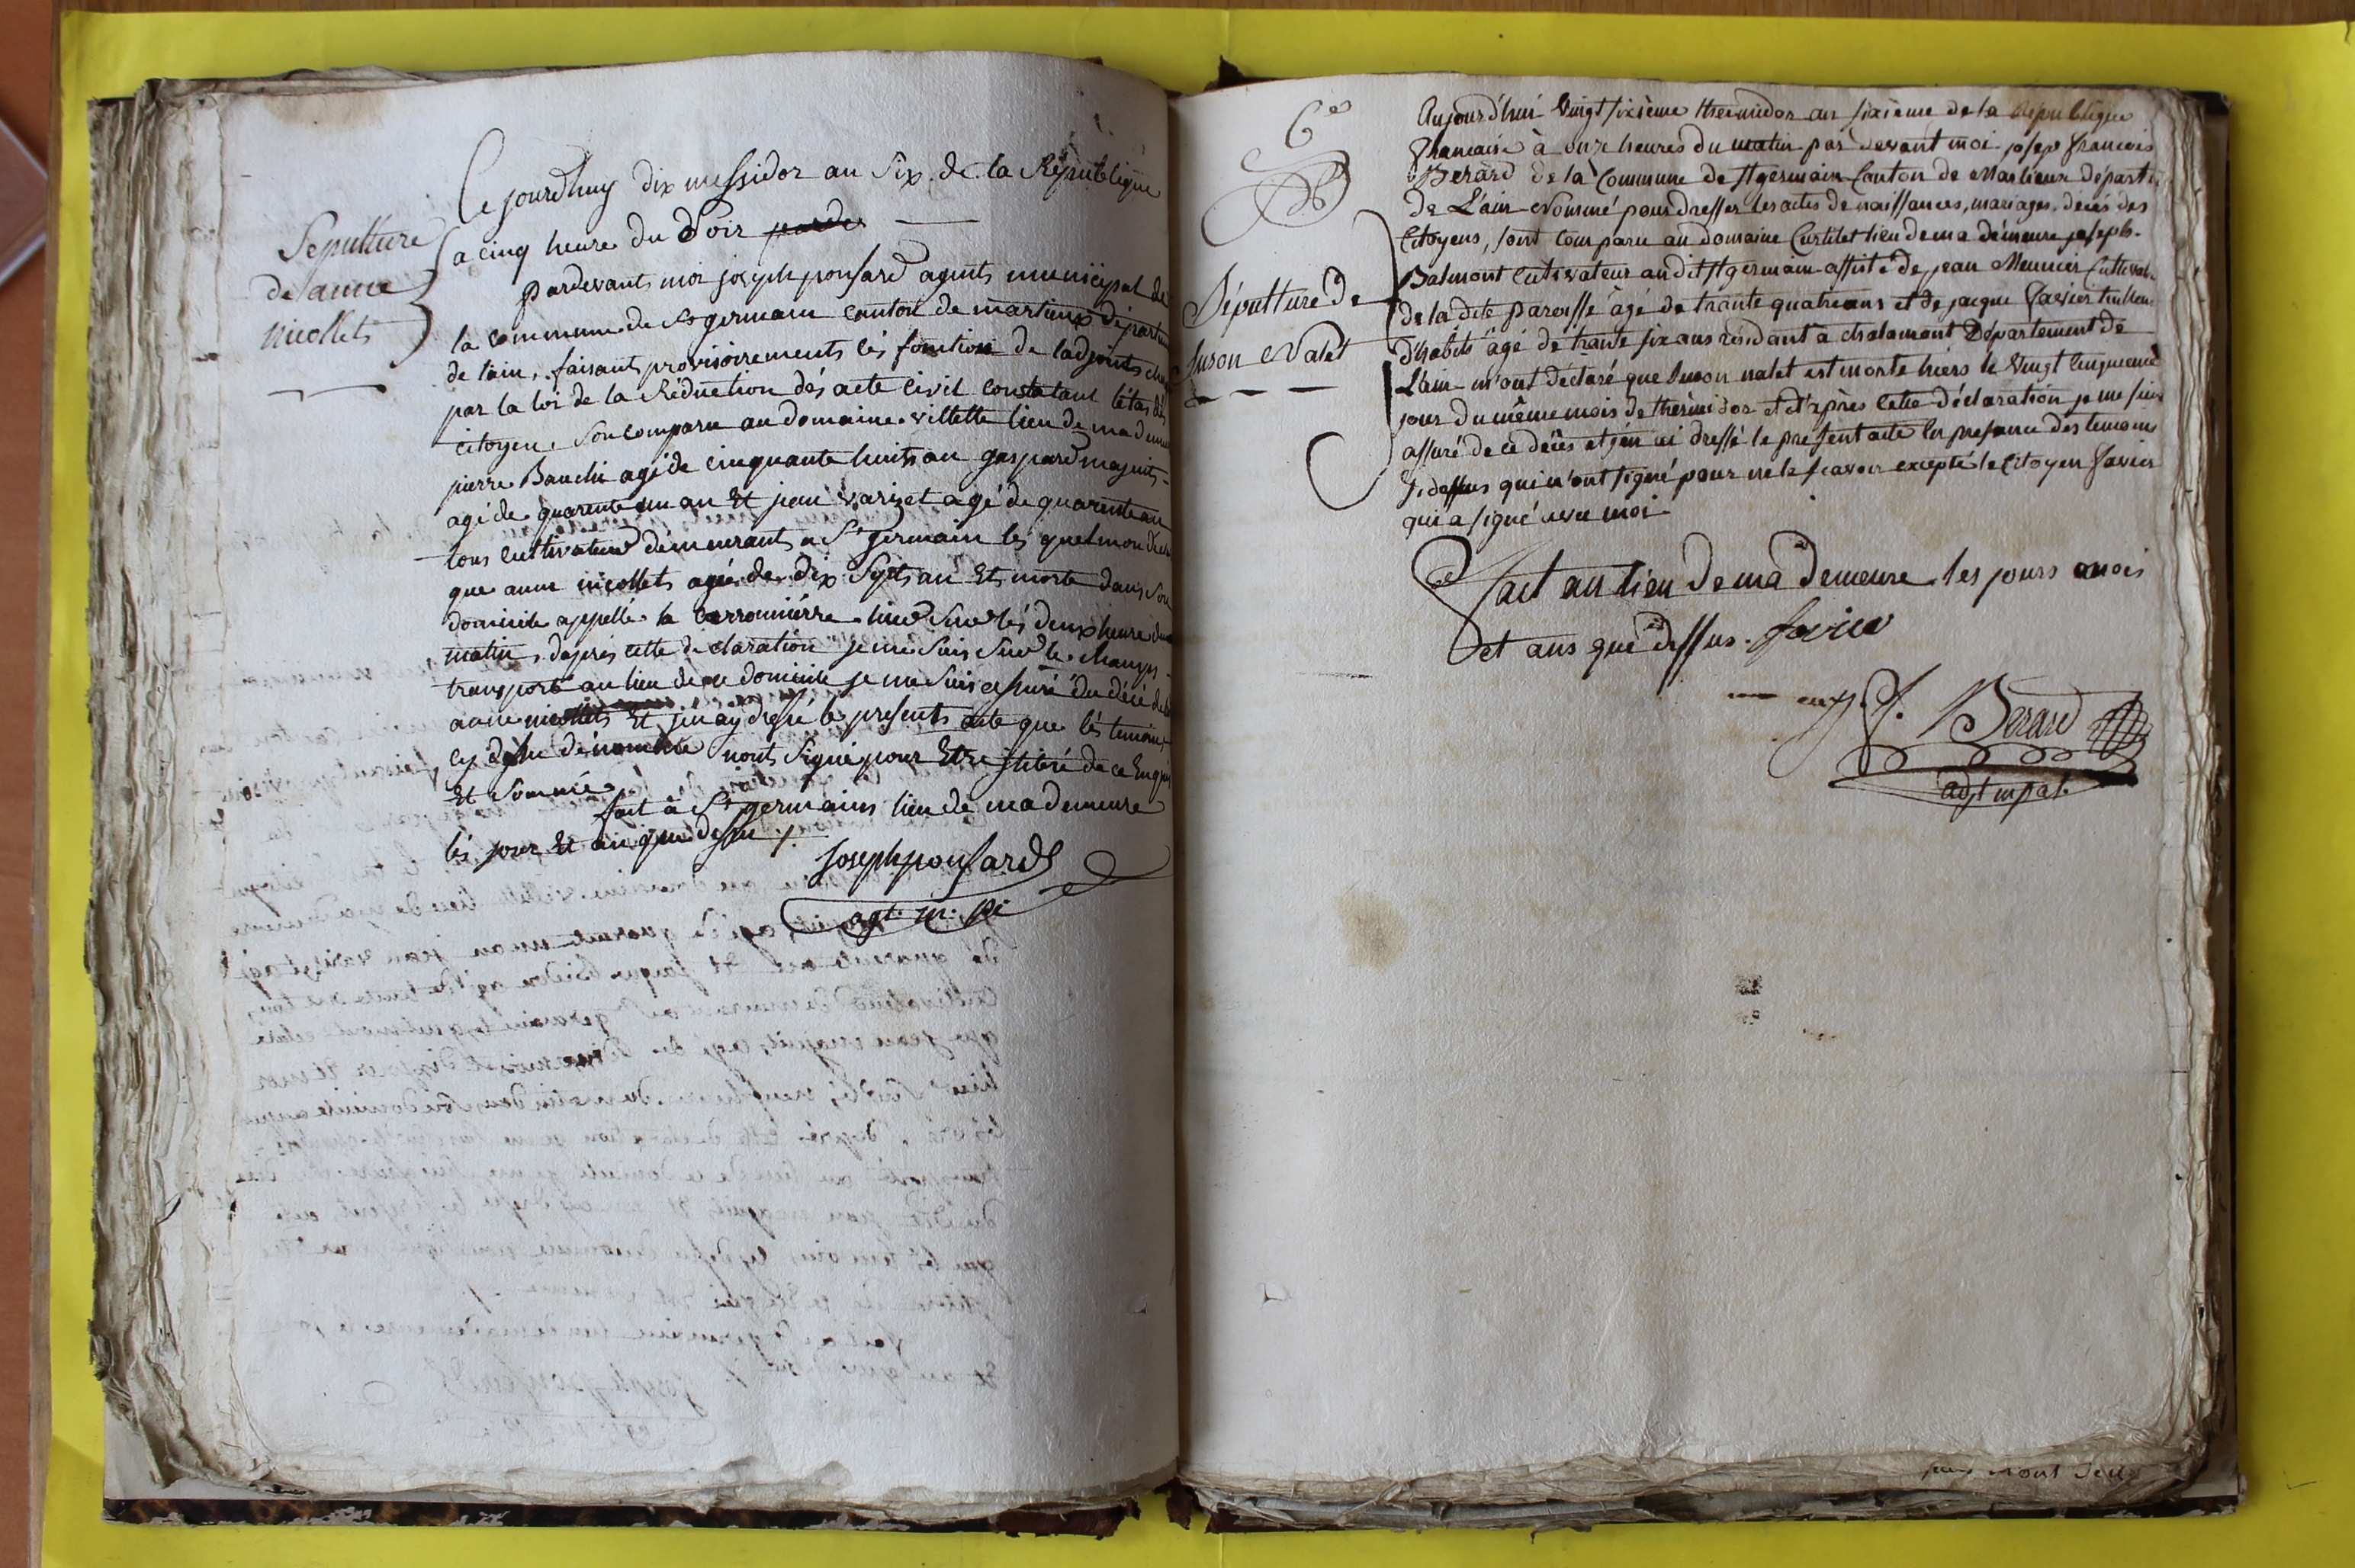 Sepulture
de anne
nicollets
Ce jourdhuy dix messidor an Six de la Republique
a cinq heure du Soir parde
pardevants moi joseph ponsard agents municipal de
la commune de St germain canton de marlieux départem
de lain, faisants provisoirements lés fonction de ladjoints
par la loi de la Rédaction dés acte civil constatant létas dés
citoyen, Son comparu au domaine villette lieu de ma demeure
pierre Bauchi agé de cinquante huits an gaspard majuit
agé de quarente un an Et jean varizet agé de quarente an
tous cultivateur démeurants a St germain lés quel mon declaré
que anne nicollets agée de dix Septs an Ets morte dans Son
domicile appellé la carronnièrre hier Sur lés deux heure du
matin, daprés cette déclaration je me Suis Sur le champs
transporté au lieu de ce domicile je me Suis assuré du décé de
anne nicollets Et jen ay dressé le présents acte que lés temoins
cy dessu dénommé nonts Signé pour Etre illitéré de ce Enquis
Et Sommé.
fait à St germains lieu de ma demeure
lés jour Et an que dessu ./.
joseph ponsard
agt. m. pl
6e
Sépulture de
Suson Nalet
Aujourd'hui vingt sixième thermidor an sixième de la république
francaise à onze heures du matin par devant moi josep francois
Berard de la Commune de St germain Canton de Marlieux départt
de L'ain Nommé pour dresser les actes de naissances, mariages, décés des
Citoyens, sont comparu au domaine Curtilet lieu de ma démeure joseph
Balmont cultivateur audit St germain assisté de jean Meunier Cultivat
de la dite paroisse âgé de trante quatre ans et de jacque favier tailleur
d'habits âgé de trante six ans résidant a chalamont Département de
L'ain m'ont déclaré que Suson nalet est morte hiers le vingt cinquieme
jour du même mois de thérmidor et d'après cette déclaration je me suis
assuré de ce décès et j'en ai dressé le présent acte en presance des temoins
sidessus qui n'ont signé pour ne le scavoir excepté le Citoyen favier
qui a signé avec moi
fait au lieu de ma demeure les jours mois
et ans que dessus. favier
J. f. Berard
adjt mpal.